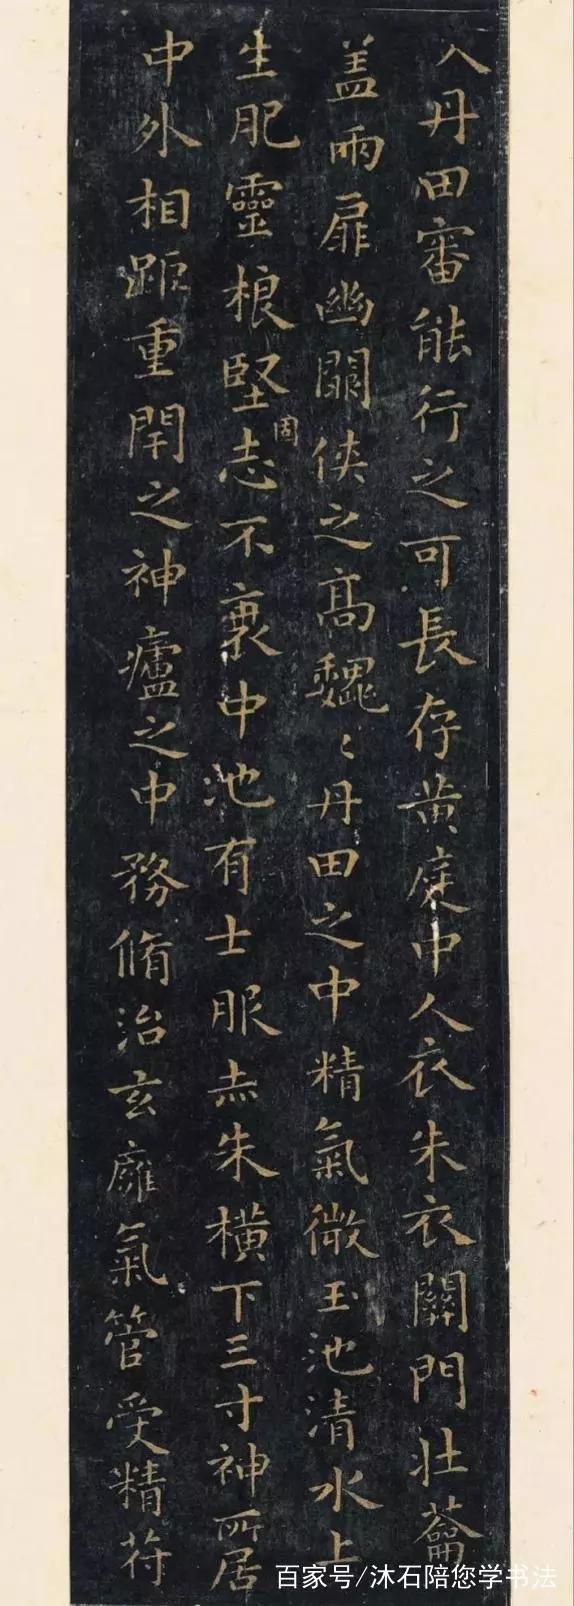 入丹田審能行之可長存黄庭中人衣朱衣關門壯蘥
盖兩扉幽關俠之高魏〻丹田之中精氣微玉池清水上
生肥靈根堅固志不衰中池有士服赤朱横下三寸神所居
中外相距重閇之神廬之中務脩治玄癰氣管受精苻
百家号/沐石陪您学书法